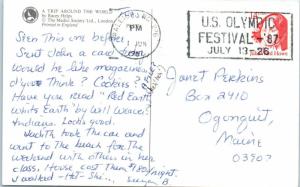 A TRIP AROUND THE WORLD
by Racey Helps
© The Medici Society Ltd., London
Printed in England
PM
1 JUN
U.S. OLYMPIC
FESTIVAL - '87
JULY 13-26
Seen this one before?
Sent John a card. Wonder
would he like magazines
d'you think? Cookies?
Have you read "Red Earth
White Earth" by Will Weaver
Indians. Looks good.
Judith took the car and
went to the beach for the
weekend with others in her
class. House cost them
I walked - Hot - She...
Janet Perkins
Box 2410
Ogonquit,
Maine
03907